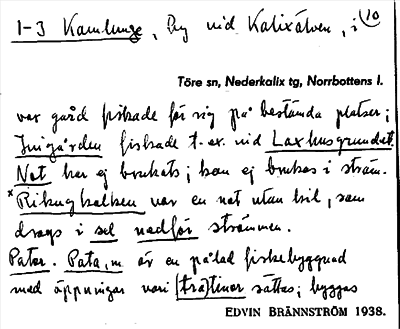 1-3 Kamlunge, by vid Kalixälven, i 10
Töre sn, Nederkalix tg, Norrbottens l.
var gård fiskade för sig på bestämda platser;
fiskade t. ex. vid Laxhusgrundet.
Not har ej brukats; kan ej brukas i ström.
x var en not utan kil, som
drogs i sel nedför strömmen.
Pater. Pata, m. är en pålad fiskebyggnad
med öppningar vari (tra)tinor sättes; byggas
EDVIN BRÄNNSTRÖM 1938.